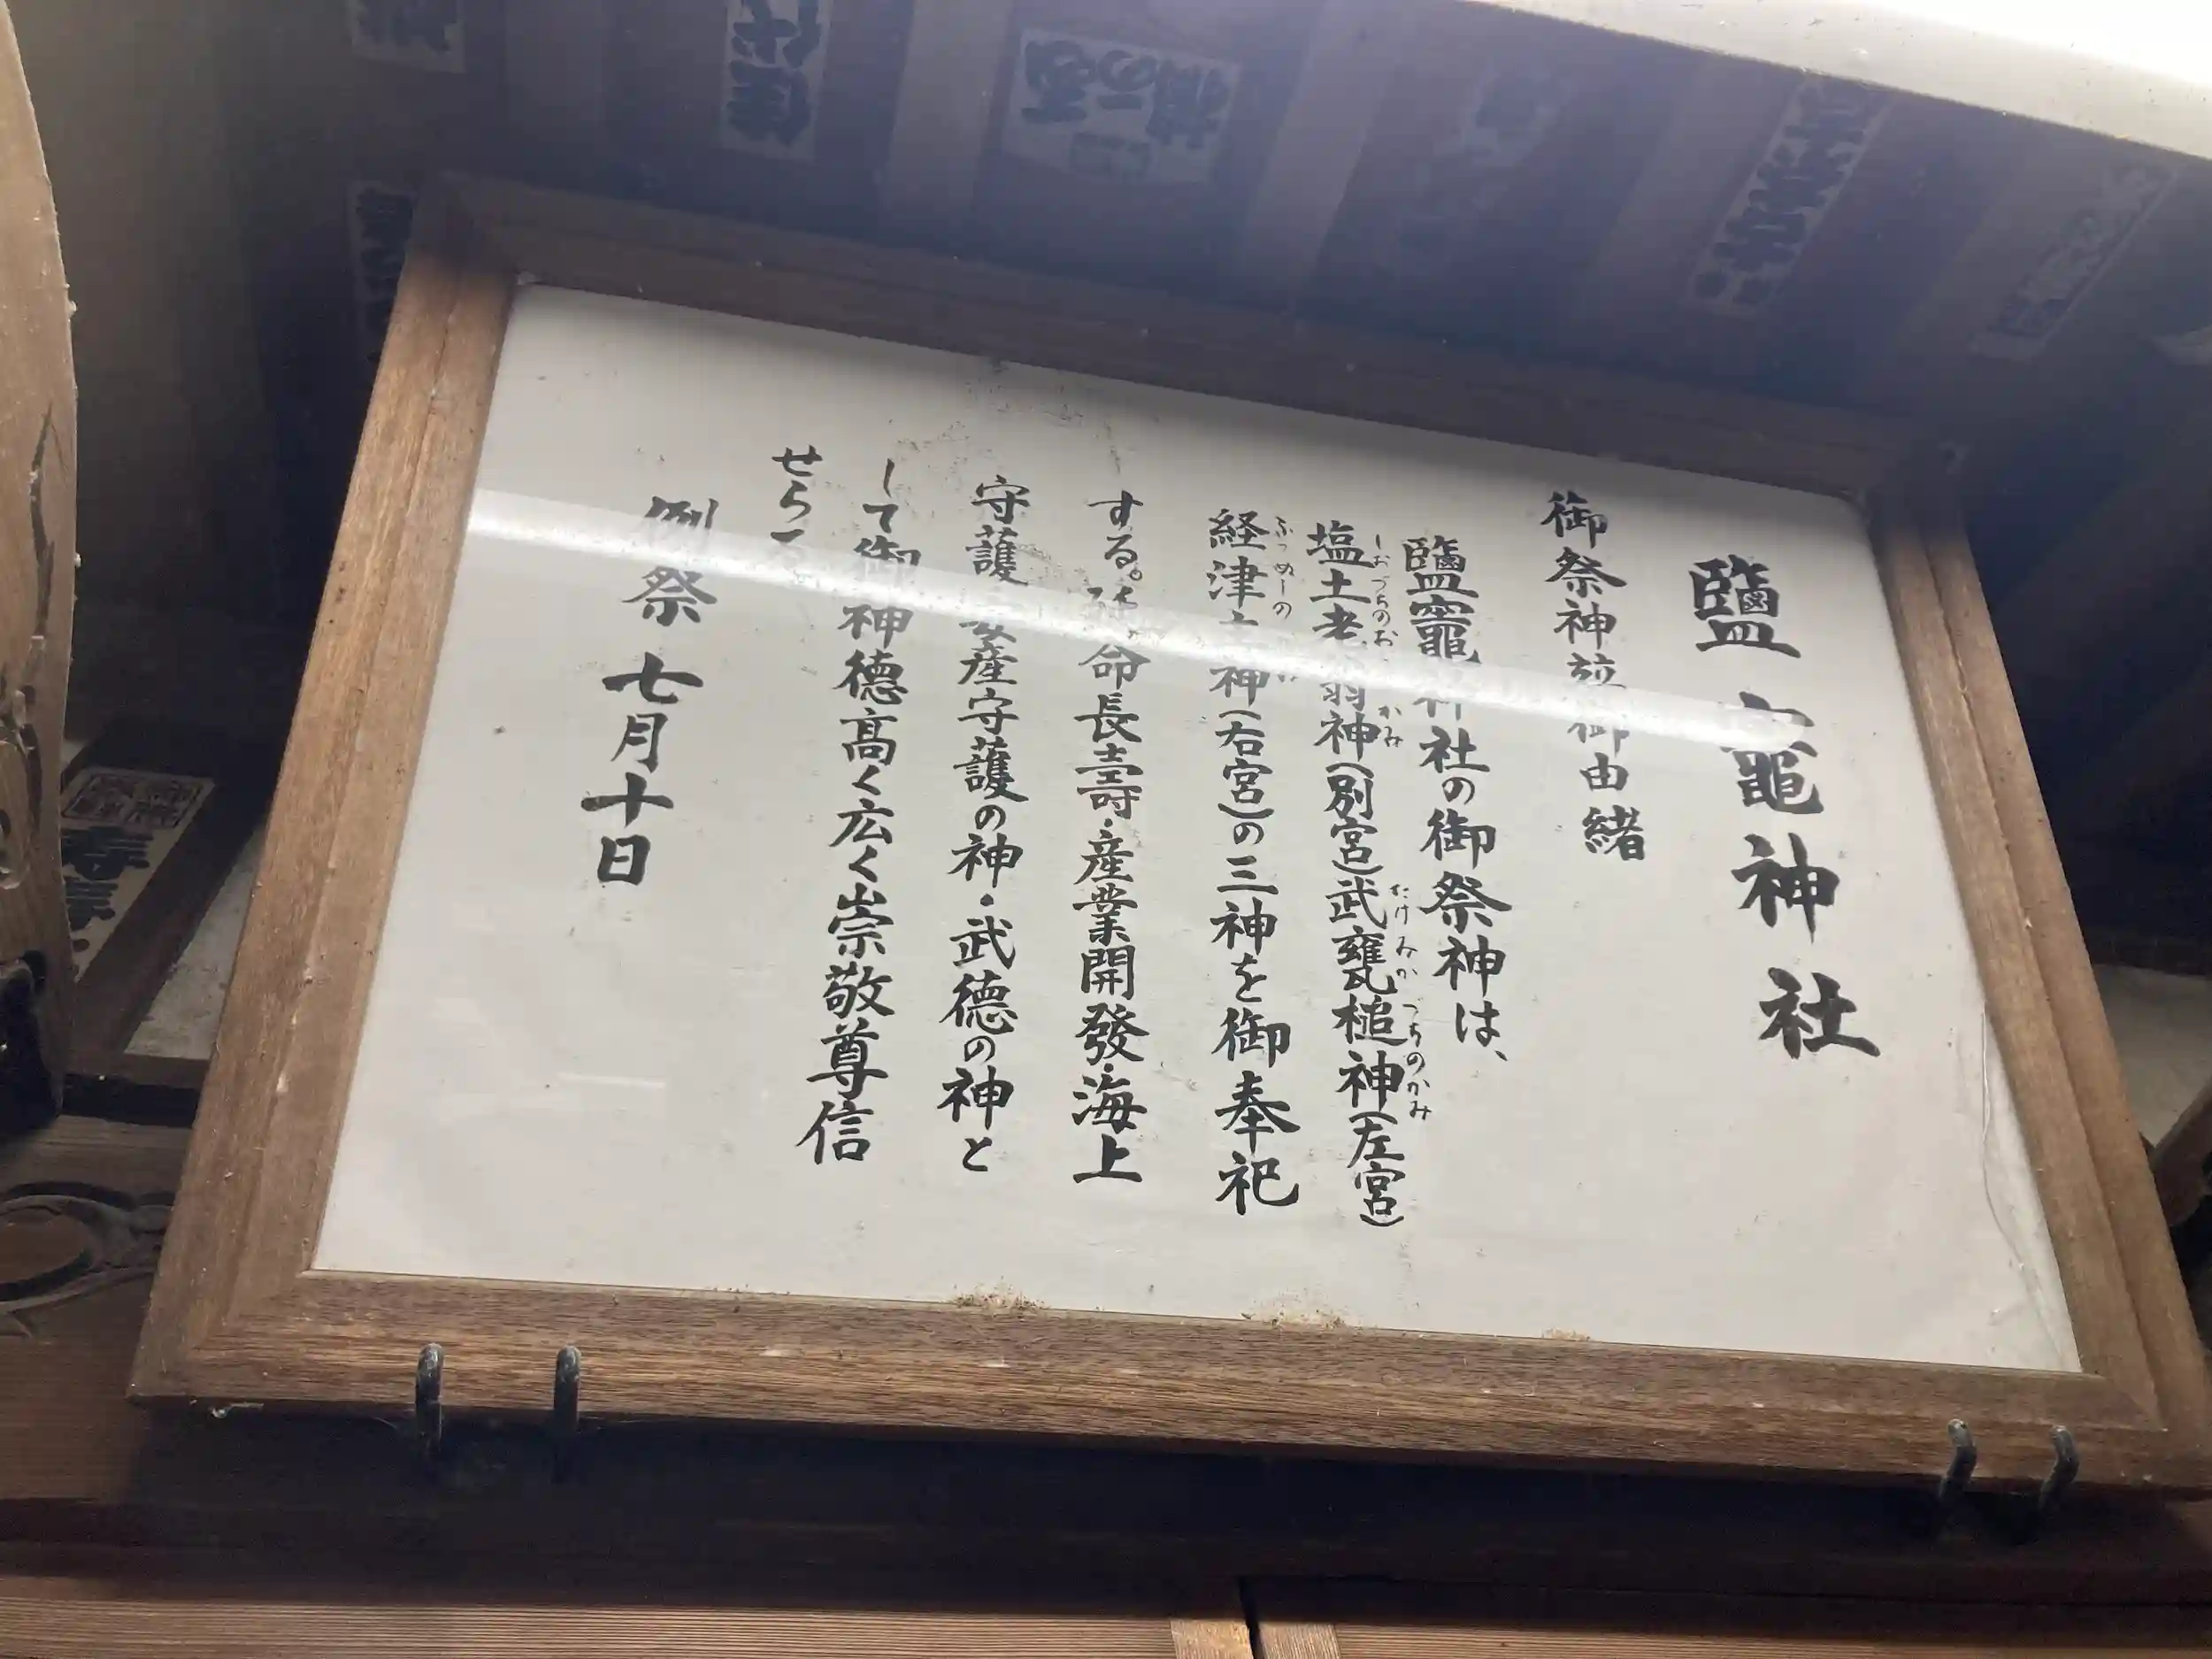 鹽竈神社
御祭神並御由緒
鹽竈神社の御祭神は、
塩土老翁神(別宮)武甕槌神(左宮)
しおづちのお かみ たけみかづちのかみ
経津主神(右宮)の三神を御奉祀
ふつぬしの
する。 命長壽・産業開發・海上
守護・安産守護の神・武徳の神と
して御神徳高く広く崇敬尊信
せら る
例祭 七月十日